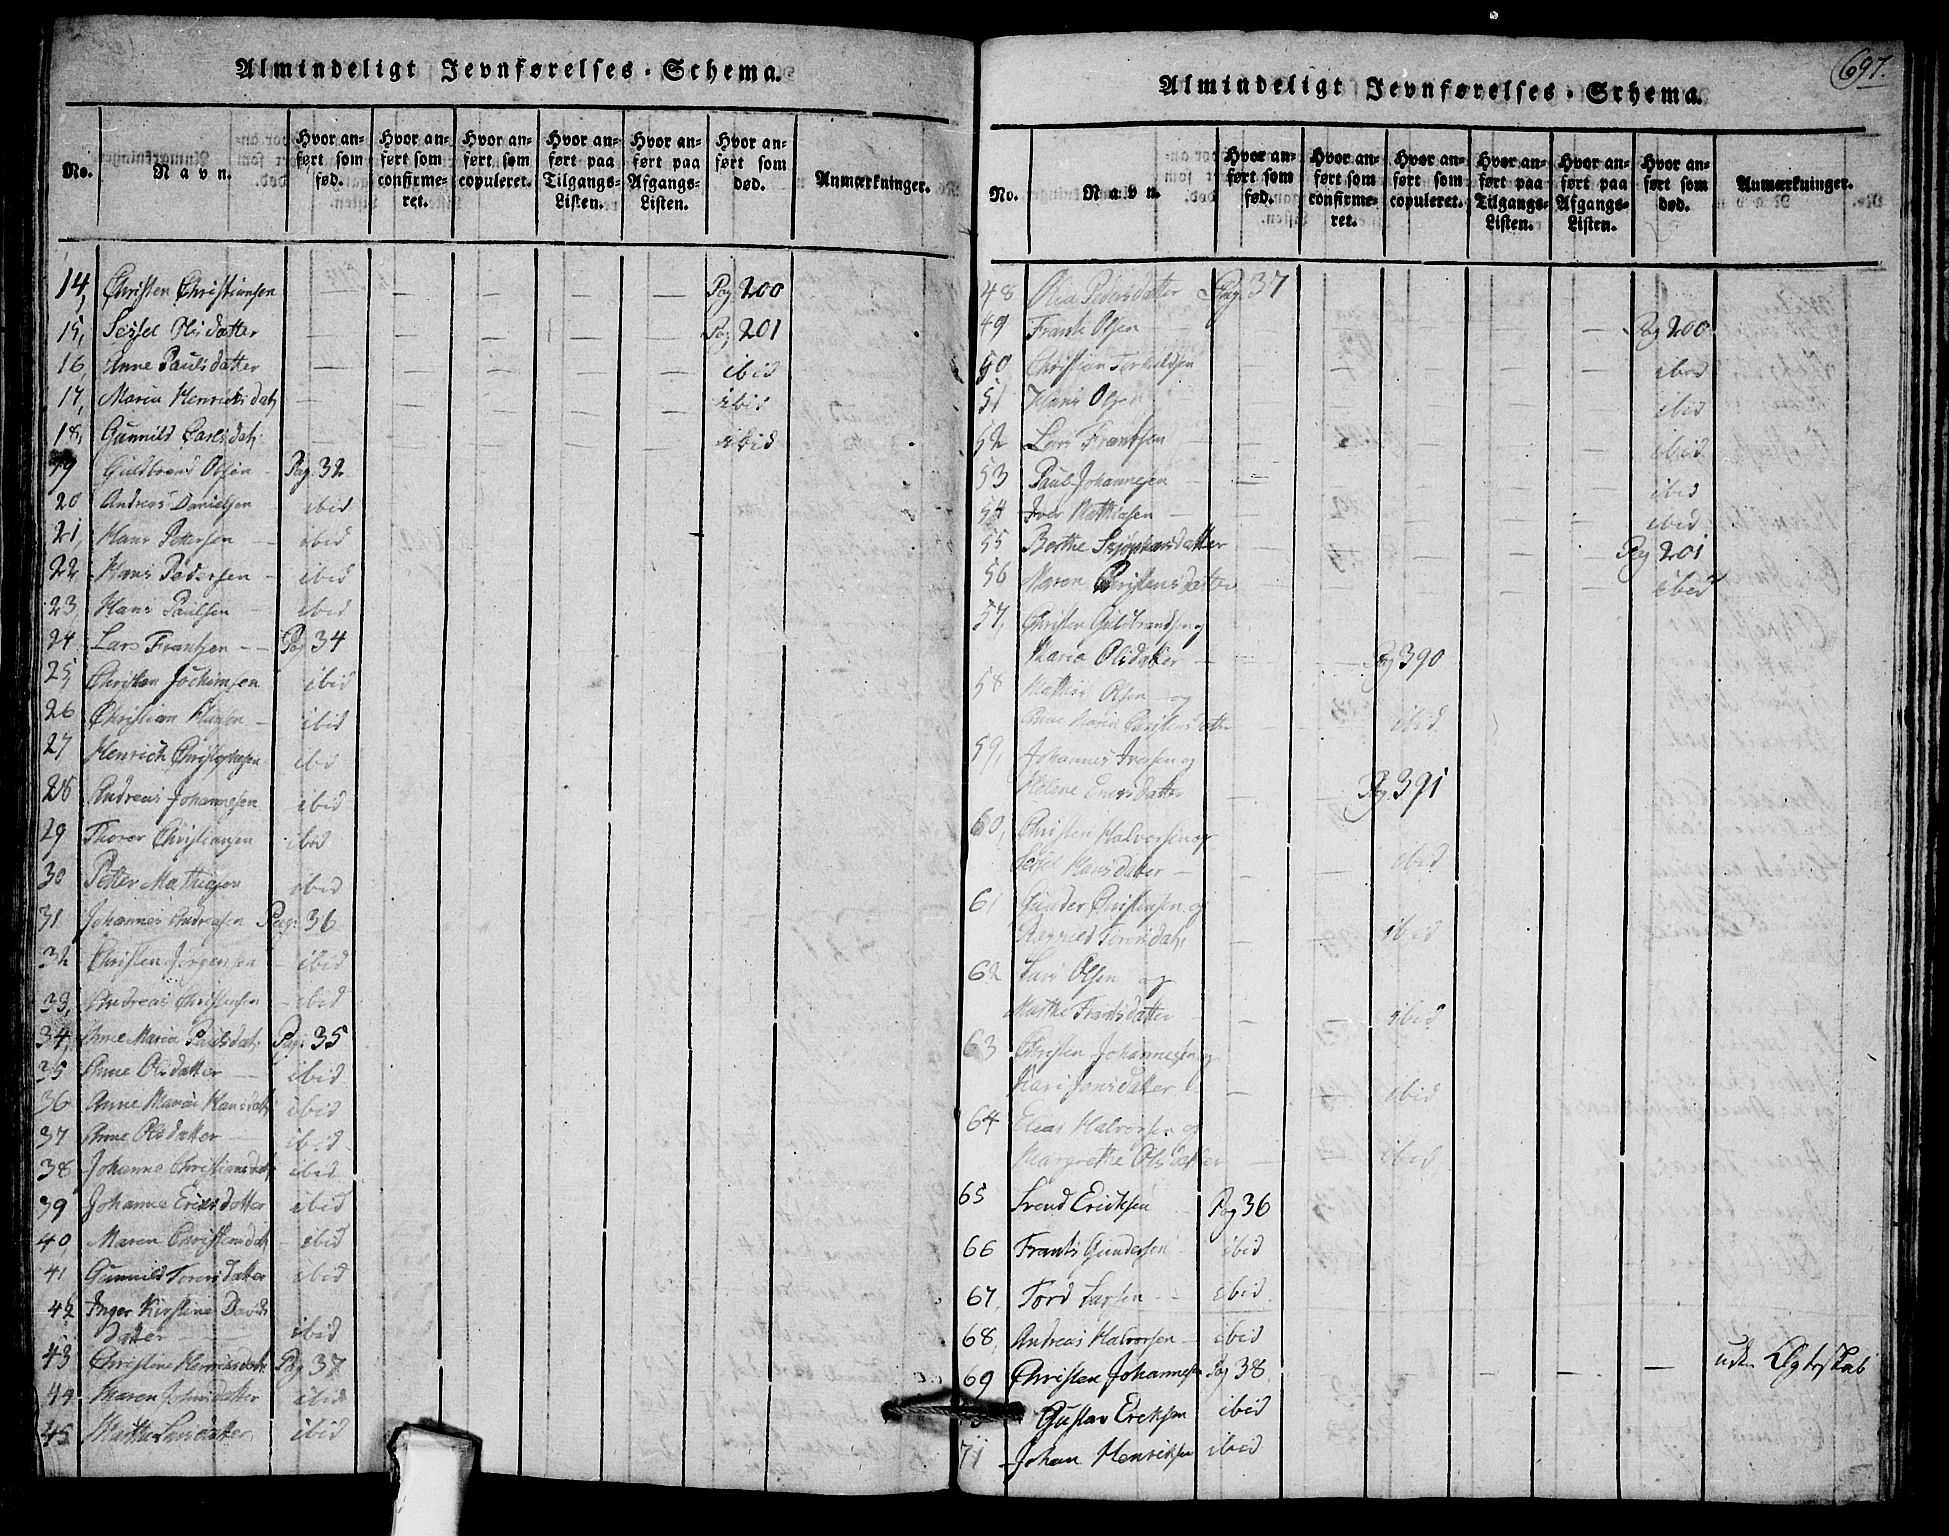 Almindeligt Jevnførelses-Schema.
No. Navn. Hvor anført som fød. Hvor anført som confirmeret. Hvor anført som copuleret. Hvor anført paa Tilgangs-Listen. Hvor anført paa Afgangs-Listen. Hvor anført som død. Anmærkninger.
14, Christen Christiansen — — — — — Pag 200
15, Sessel Olsdatter — — — — — Pag 201
16 Anne Paulsdatter — — — — — ibid
17, Maria Henrichsdat, — — — — — ibid
18, Gunnild Carlsdat, — — — — — ibid
19 Guldbrand Olsen - Pag. 32
20 Andreas Danielsen ibid
21, Hans Pettersen — ibid
22 Hans Pedersen - ibid
23, Hans Paulsen — ibid
24 Lars Frantsen - - Pag 34
25 Christen Jochimsen ibid
26 Christian Hansen - ibid
27 Henrich Christophersen ibid
28 Andreas Johannesen ibid
29 Thorer Christiansen ibid
30 Petter Mathiesen ibid
31 Johannes Andreasen Pag: 36
32 Christen Jørgensen — ibid
33, Andreas Christensen - ibid
34, Anne Maria Paulsdat, Pag: 35
35 Anne Olsdatter — ibid
36 Anne Maria Hansdat, ibid
37 Anne Olsdatter — ibid
38 Johanne Christiansdat, ibid
39 Johanne Ericsdatter ibid
40, Maren Christensdat, ibid
41 Gunnild Torersdatter ibid
42 Inger Kirstine Davids
datter — — ibid
43 Christine Henrichsdatr. Pag 37
44 Maren Johnsdatter ibid
45 Marthe Larsdatter ibid
697.
Almindeligt Jevnførelses-Schema.
No. Navn. Hvor anført som fød. Hvor anført som confirmeret. Hvor anført som copuleret. Hvor anført paa Tilgangs-Listen. Hvor anført paa Afgangs-Listen. Hvor anført som død. Anmærkninger.
48 Olea Pedersdatter Pag. 37
49 Frants Olsen — Pag 200
50 Christian Torkildsen — ibid
51 Hans Olsen ibid
52 Lars Frantsen — ibid
53 Paul Johannesen — ibid
54 Iver Mathiesen — ibid
55 Berthe datter Pag 201
56 Maren Christensdatter ibid
57, Christen Guldbrandsen og
Maria Olsdatter — Pag 390
58 Mathis Olsen — og
Anne Maria Christensdatter ibid
59, Johannes Iversen og
Helene Ericsdatter — Pag. 391
60, Christen Halvorsen og
Sessel Hansdatter — ibid
61 Gunder Christensen og
Ragnild Torersdat, — — ibid
62 Lars Olsen og
Marthe Frantsdatter — — ibid
63 Christen Johannesen og
Kari Jonsdatter — — ibid
64 Elias Halvorsen og
Margrethe Olsdatter — — ibid
65 Svend Ericksen Pag 36
66 Frants Gundersen ibid
67, Tord Larsen - - ibid
68, Andreas Halvorsen — ibid
69 Christen Johannesen Pag 38 — — — — — uden Ægteskab
Gustav Ericksen ibid
71 Johan Henriksen ibid